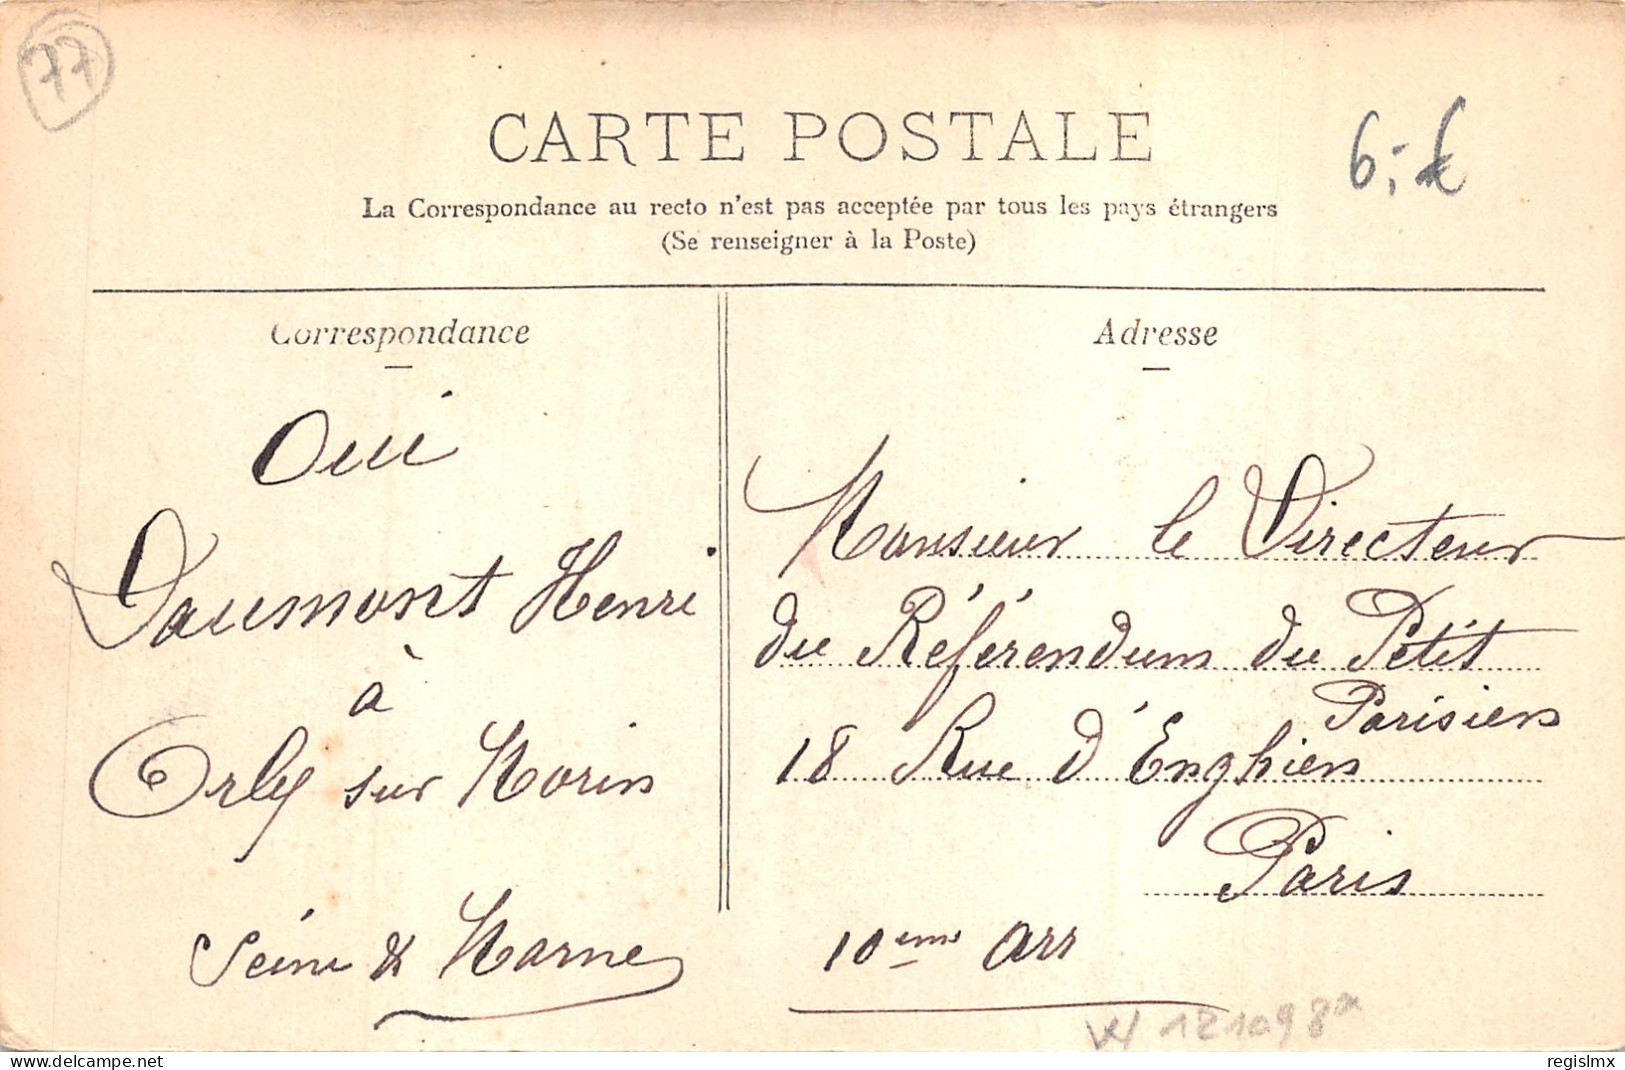 77
CARTE POSTALE
6,-€
La Correspondance au recto n'est pas acceptée par tous les pays étrangers
(Se renseigner à la Poste)
Correspondance
Oui
Daumont Henri
à
Orly sur Morin
Seine & Marne
Adresse
Monsieur le Directeur
du Référendum du Petit
Parisien
18 Rue d'Enghien
Paris
10ème Arr
121098
delcampe.net
regislmx